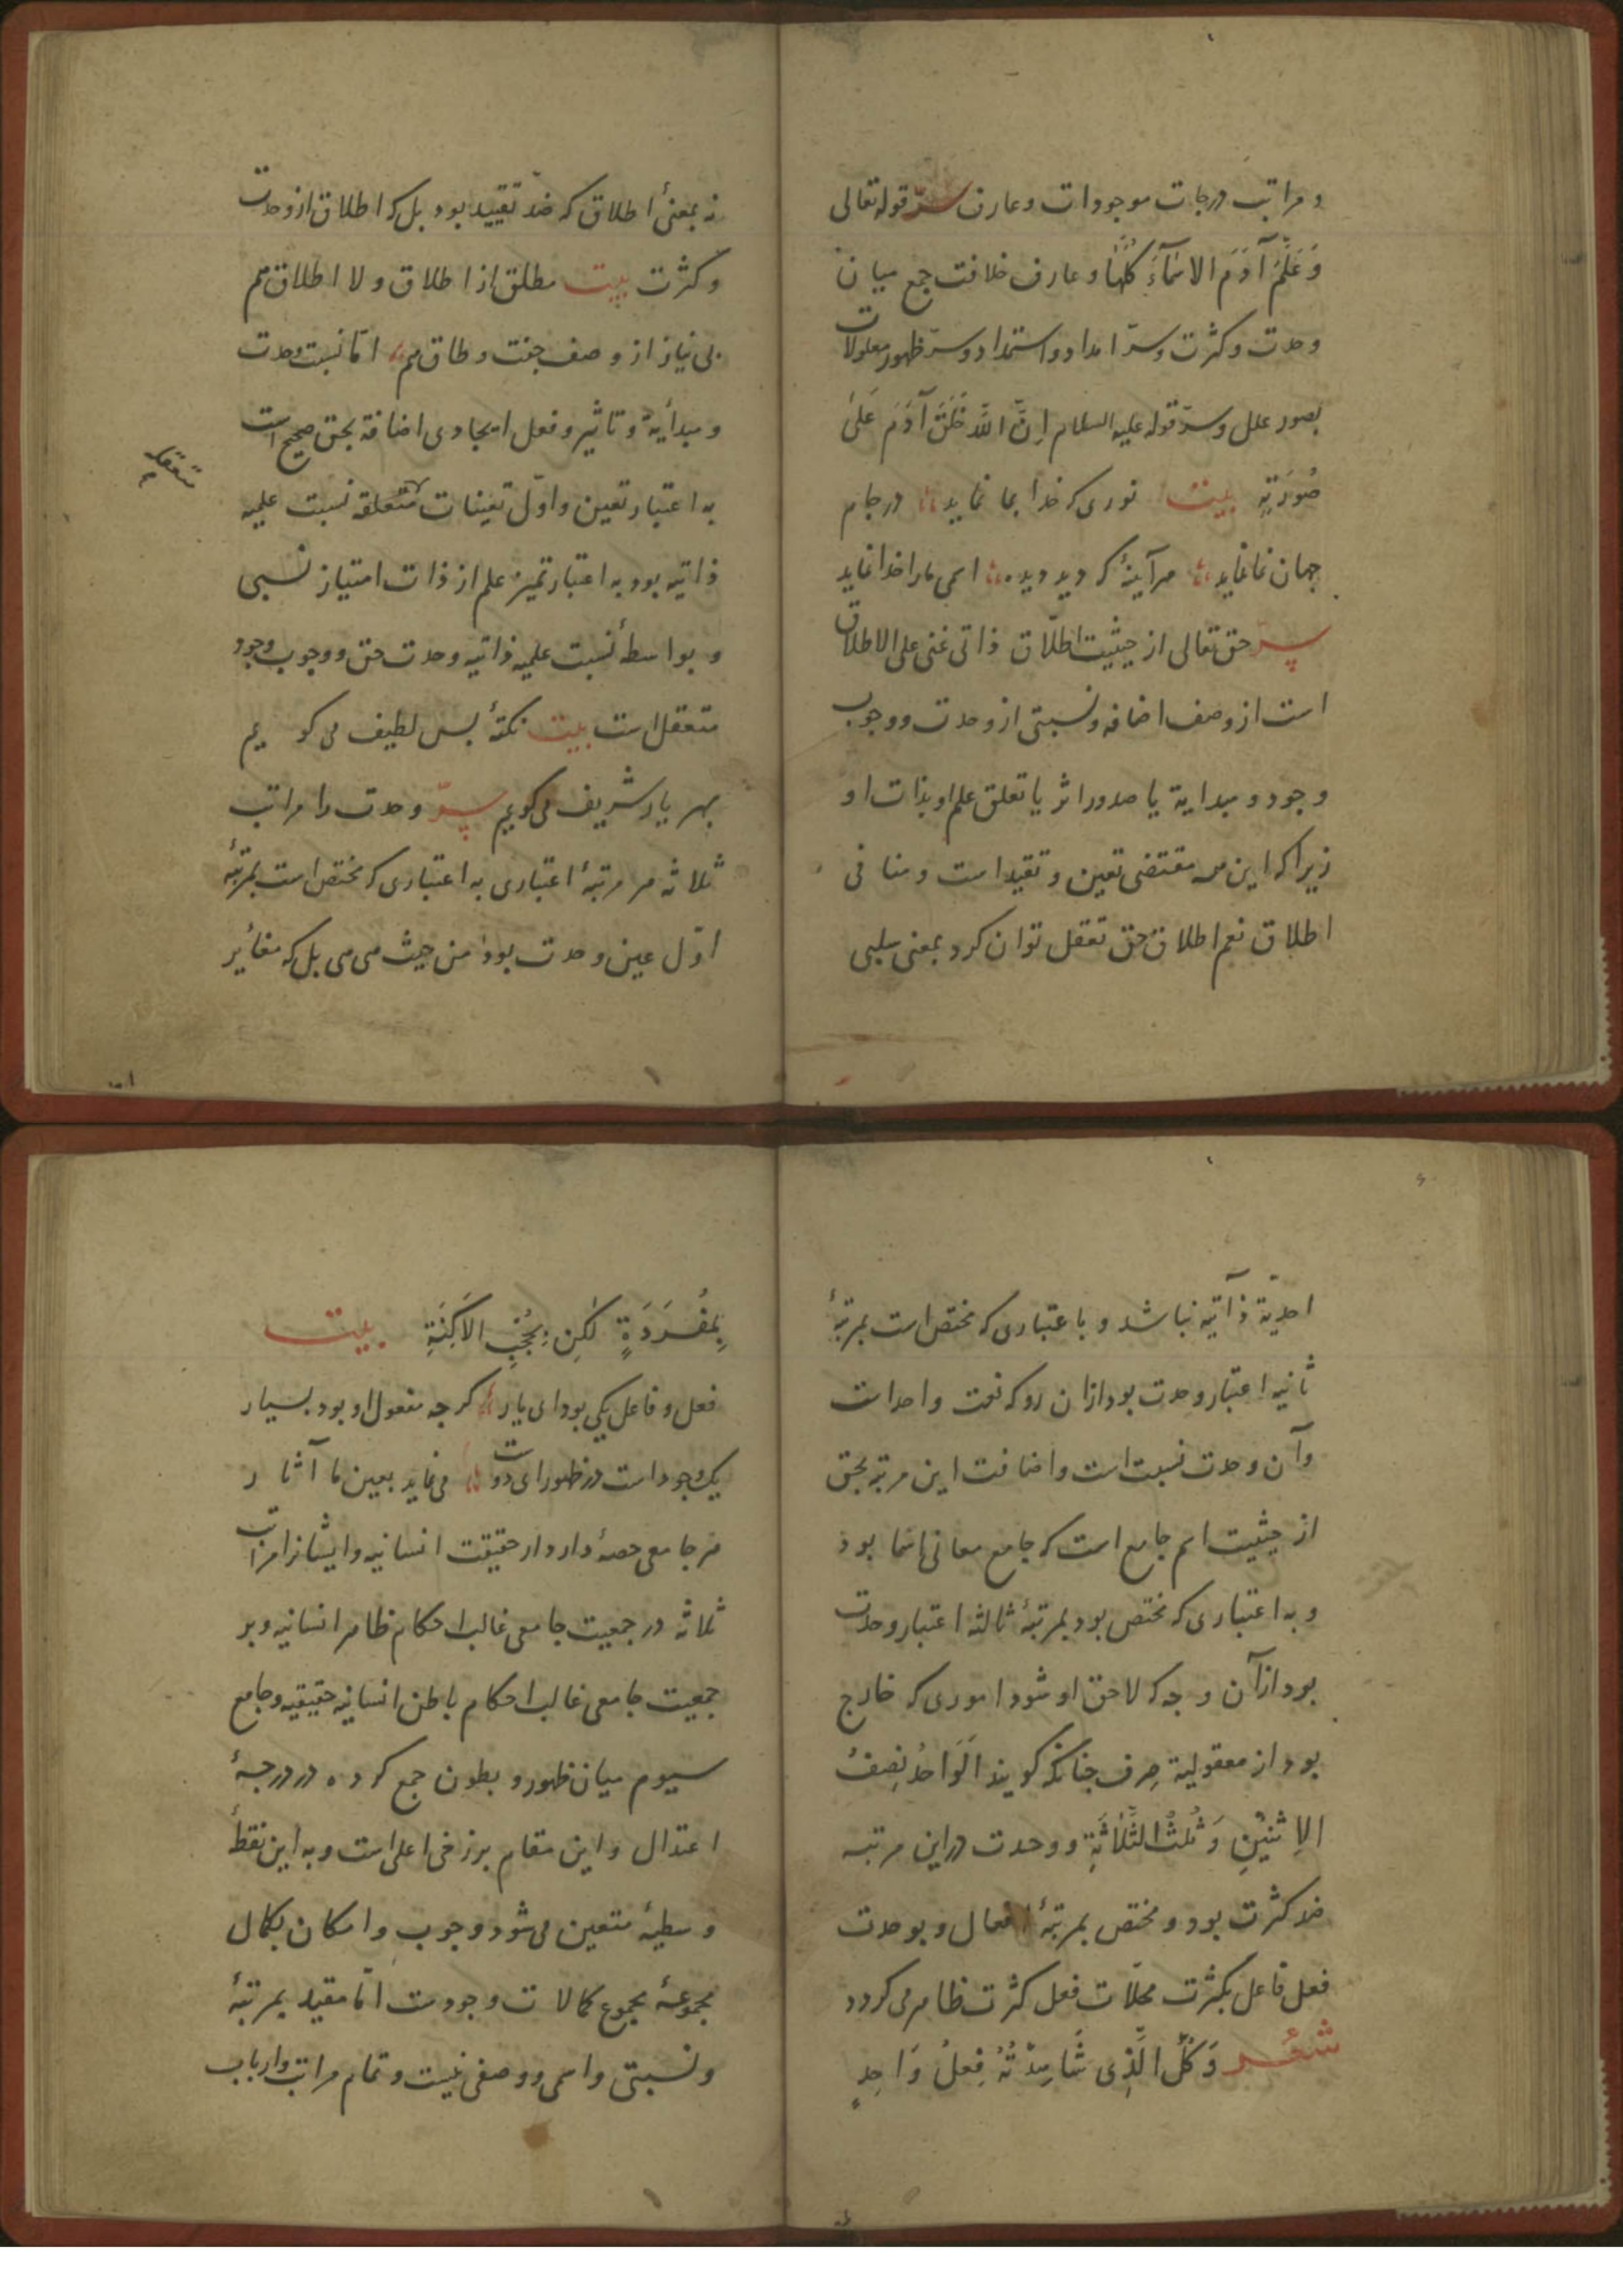 و مراتب درجات موجودات و عارف سرّ قوله تعالی
وَعَلَّمَ آدَمَ الاسْمَآءَ كُلَّهَا و عارف خلافت جمع میان
وحدت و کثرت و سرّ امداد و استمداد و سرّ ظهور معلولات
بصور علل و سرّ قوله علیه السلام اِنَّ اللّٰهَ خَلَقَ آدَمَ عَلیٰ
صُورَتِهِ بیت نوری که خدا بما نماید در جام
جهان نما نماید هر آینهٔ که دید دیده اسمی ما را خدا نماید
سرّ حق تعالی از حیثیت اطلاق ذاتی غنی علی الاطلاق
است از وصف اضافه و نسبتی از وحدت و وجوب
وجود و مبدایة یا صدور اثر یا تعلق علم او بذات او
زیرا که این همه مقتضی تعین و تقید است و منافی
اطلاق نعم اطلاق حق تعقل توان کرد بمعنی سلبی
نه بمعنیٔ اطلاق که ضدّ تقیید بود بل که اطلاق از وحدت
و کثرت بیت مطلق از اطلاق و لا اطلاق هم
بی نیاز از وصف جفت و طاق هم امّا نسبت وحدت
و مبدأیة و تاثیر و فعل ایجادی اضافة بحق صحیح است
به اعتبار تعین و اوّل تعینات متعلقه نسبت علمیه
متعقله
ذاتیه بود به اعتبار تمیز علم از ذات امتیاز نسبی
و بواسطهٔ نسبت علمیه ذاتیه وحدت حق و وجوب وجود
متعقل است بیت نکتهٔ بس لطیف می کویم
بهر یار شریف می کویم سرّ وحدت را مراتب
ثلاثه هر مرتبهٔ اعتباری به اعتباری که مختص است بمرتبهٔ
اوّل عین وحدت بود من حیث هی هی بل که مغایر
احدیة ذاتیه نباشد و باعتباری که مختص است بمرتبهٔ
ثانیه اعتبار وحدت بود ازان رو که نعت واحد است
و آن وحدت نسبت است و اضافت این مرتبه بحق
از حیثیت اسم جامع است که جامع معانی اسما بود
و به اعتباری که مختص بود بمرتبهٔ ثالثه اعتبار وحدت
بود از آن وجه که لاحق او شود اموری که خارج
بود از معقولیة صرف چنانکه کویند اَلوَاحدُ نِصفُ
الاِثنَینِ وَ ثُلثُ الثَّلَاثَةِ و وحدت در این مرتبه
ضد کثرت بود و مختص بمرتبهٔ افعال و بوحدت
فعل فاعل بکثرت محلّات فعل کثرت ظاهر می کردد
شعر وَكُلُّ الَّذِی شَاهَدْتُهُ فِعلُ وَاحِدٍ
بِمُفْرَدَةٍ لٰكِن بِحُجْبِ الاَكِنَّةِ بیت
فعل و فاعل یکی بود ای یار کر چه مفعول او بود بسیار
یک وجود است در ظهور ای دوست می نماید بعین ما آثار
هر جامعی حصهٔ دارد از حقیقت انسانیه و ایشانرا مراتب
ثلاثه در جمعیت جامعی غالب احکام ظاهر انسانیه و بر
جمعیت جامعی غالب احکام باطن انسانیه حقیقیه و جامع
سیوم میان ظهور و بطون جمع کرده در درجهٔ
اعتدال و این مقام برزخی اعلی است و به این نقطهٔ
وسطیهٔ متعین می شود وجوب و امکان بکمال
مجموعهٔ مجموع کمالات وجودست امّا مقید بمرتبهٔ
و نسبتی و اسمی و وصفی نیست و تمام مراتب و ارباب